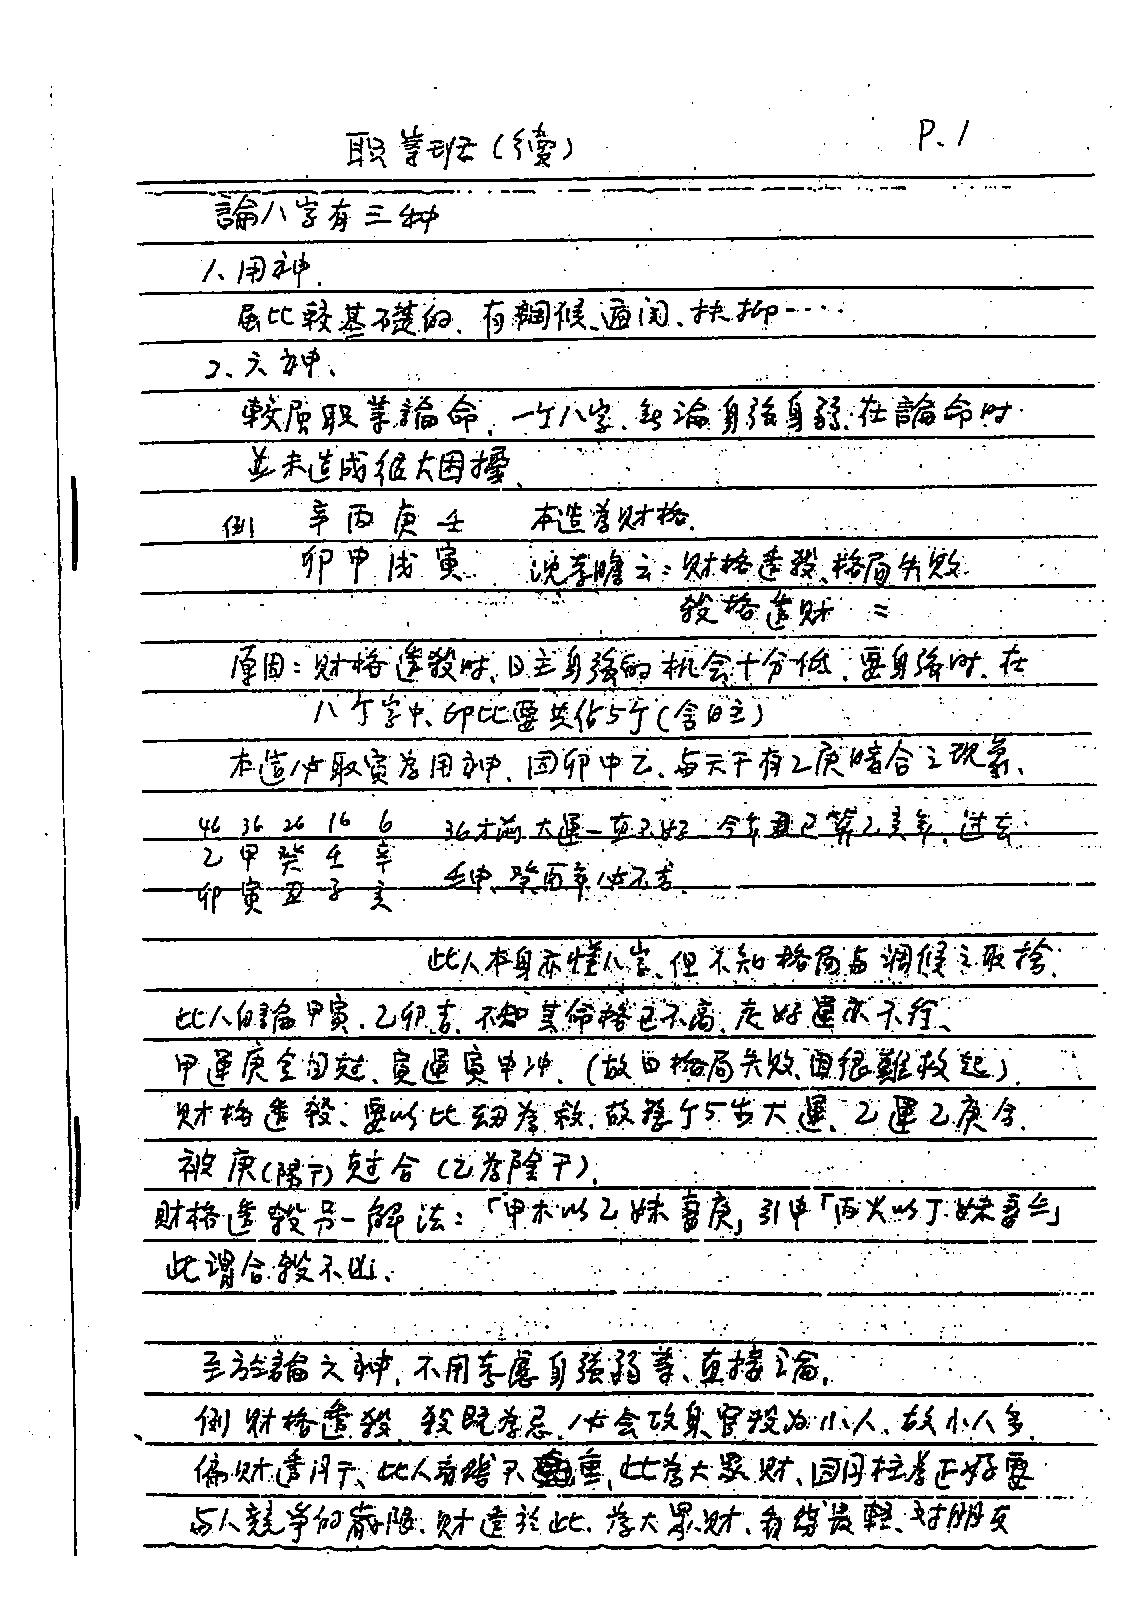 职業班(續) P.1
論八字有三种
1、用神.
屬比較基礎的、有調候、通関、扶抑‥‥
2、六神、
較屬职業論命、一个八字、無論身强身弱、在論命时
並未造成很大困擾、
例 辛丙庚壬 本造為财格.
卯申戌寅 沈孝瞻云:财格透殺、格局失敗
殺格透财 =
原因:财格透殺时、日主身强的机会十分低、要身强时、在
八个字中、印比要共佔5个(含日主)
本造必取寅為用神、因卯中乙、与天干有乙庚暗合之現象、
46 36 26 16 6 36才前大運一直不好 今年丑已算乙亥年、过去
乙甲癸壬辛 壬申、癸酉年必不吉.
卯寅丑子亥
此人本身亦懂八字、但不知格局与調候之取捨.
此人自論甲寅、乙卯吉、不知其命格已不高、走好運亦不徃、
甲運庚金回尅、寅運寅申冲、(故曰格局失敗、更很難救起)、
财格透殺、要以比刼為救、故鷄个5步大運、乙運乙庚合、
被庚(陽干)尅合(乙為陰干)、
财格透殺另一解法:「甲木以乙妹妻庚」引申「丙火以丁妹妻壬」
此謂合殺不凶、
至於論六神、不用考慮身强弱等、直接之論、
例 财格透殺、殺既為忌、必会攻身 官殺为小人、故小人多、
偏财透月干、此人看錢不重、此為大眾财、因月柱為正好要
与人競爭的歲限、财透於此、為大眾财、看錢最輕、对朋友